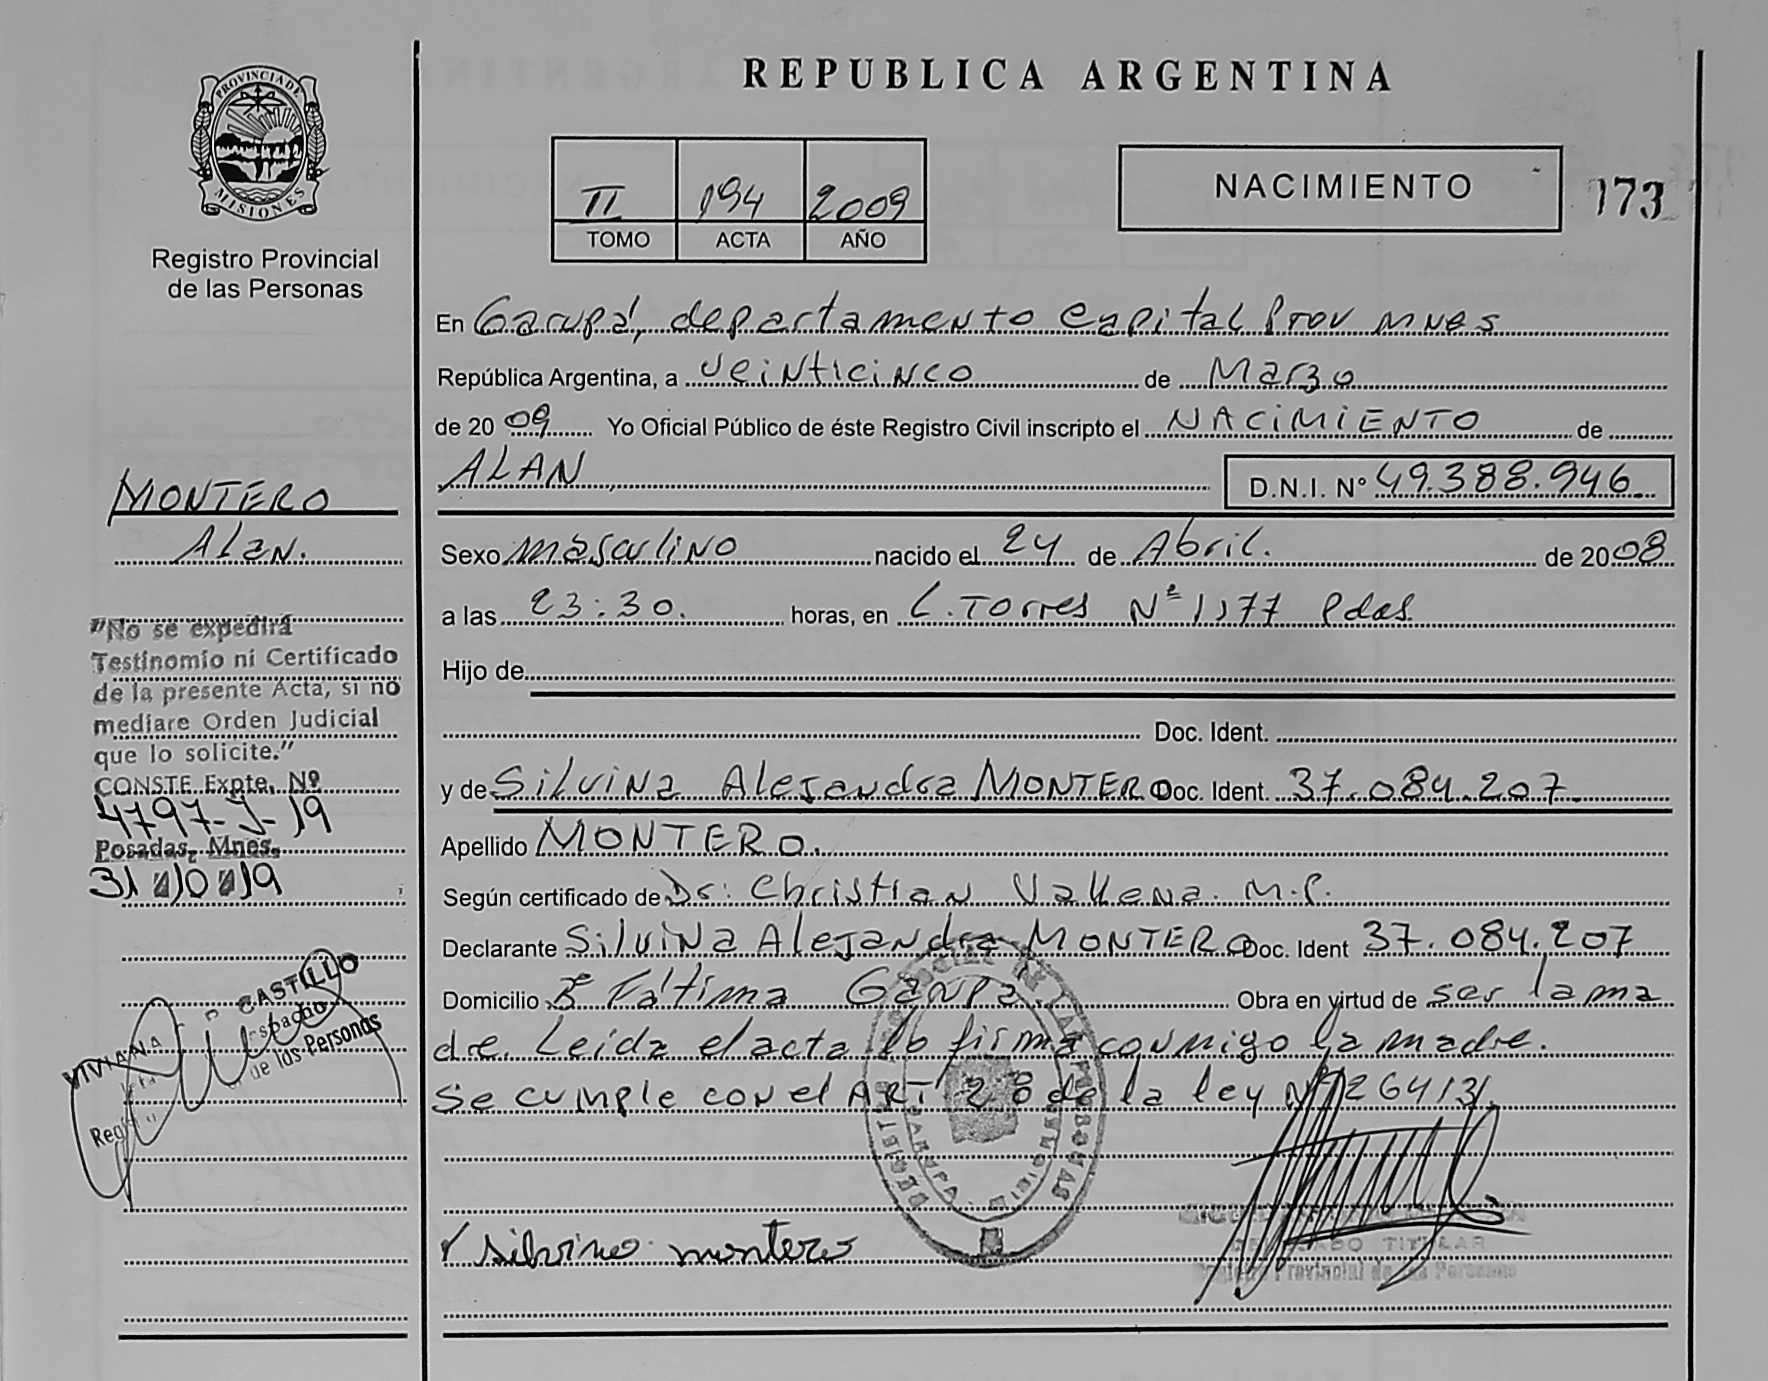 REPUBLICA ARGENTINA
PROVINCIA DE
MISIONES
Registro Provincial
de las Personas
II 194 2009
TOMO ACTA AÑO
NACIMIENTO
173
En Garupá, departamento Capital Prov Mnes
República Argentina, a veinticinco de Marzo
de 2009 Yo Oficial Público de éste Registro Civil inscripto el NACIMIENTO de
ALAN D.N.I. N° 49.388.946
Sexo masculino nacido el 24 de Abril. de 2008
a las 23:30. horas, en L. Torres Nº 1177 Pdas.
Hijo de
Doc. Ident.
y de Silvina Alejandra MONTERO Doc. Ident. 37.084.207
Apellido MONTERO.
Según certificado de Dr: Christian M.P.
Declarante Silvina Alejandra MONTERO Doc. Ident 37.084.207
Domicilio Fátima Garupá Obra en virtud de ser la ma
dre. Leida el acta lo firma conmigo la madre.
Se cumple con el ART 28 de la ley Nº 26413.
silvina montero
TITULAR
Registro Provincial de las Personas
MONTERO
Alan.
"No se expedirá
Testinomio ni Certificado
de la presente Acta, si no
mediare Orden Judicial
que lo solicite."
CONSTE Expte. Nº
4797-J-19
Posadas, Mnes.
31 10 19
VIVIANA CASTILLO
de las Personas